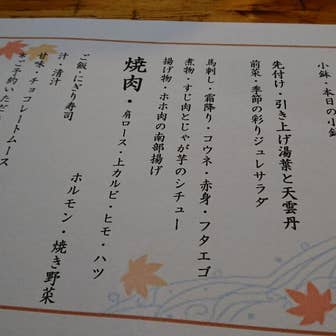 小鉢・本日の小鉢
先付け・引き上げ湯葉と天雲丹
前菜・季節の彩りジュレサラダ
馬刺し・霜降り・コウネ・赤身・フタエゴ
煮物・すじ肉とじゃが芋のシチュー
揚げ物・ホホ肉の南部揚げ
焼肉・肩ロース・上カルビ・ヒモ・ハツ
ホルモン・焼き野菜
ご飯・にぎり寿司
汁・清汁
甘味・チョコレートムース
ご予約いただ